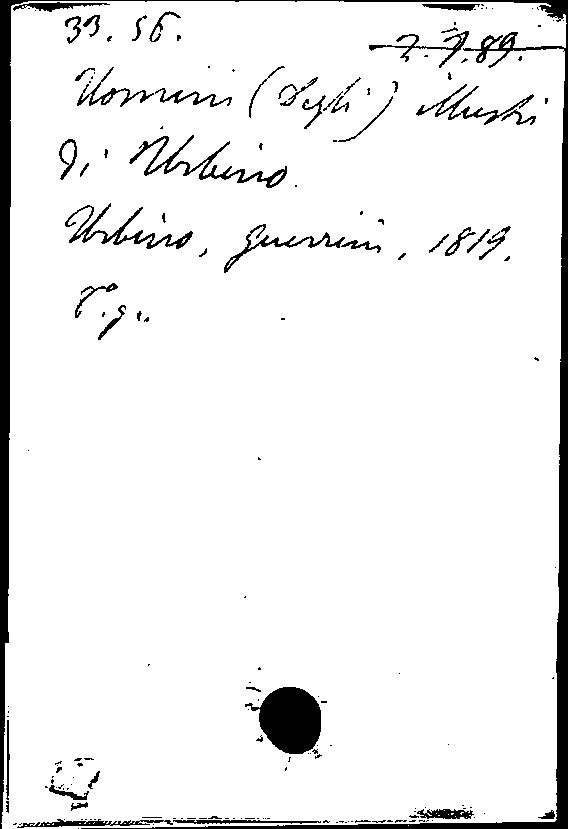 33. 56.
2. 7. 89.
Uomini (Degli) illustri
di Urbino.
Urbino, Guerrini, 1819.
8°. g..